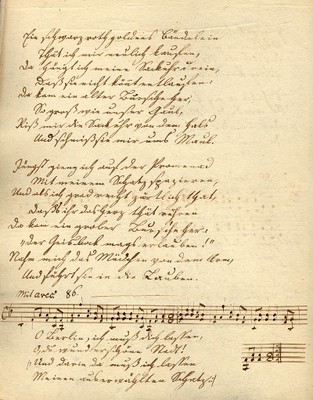 Ein schwarz roth goldnes Bändelein
That ich mir neulich kaufen,
Da hängt ich meine Sackuhr dran,
Daß sie nicht könnt entlaufen.
Da kam ein alter Bursche her,
So groß wie unser Haus,
Riß mir die Sackuhr von dem Hals
Und schmiß sie mir ums Maul.
Jüngst gieng ich auf der Promenad
Mit meinem Schatz spazieren,
Und als ich grad recht zärtlich that,
Daß ihr das Herz thät rühren
Da kam ein grober Bursche her:
"der mags erlauben!"
Nahm mich das Mädchen von dem Arm,
Und führt sie in die Lauben.
Mel. avec 86.
O Berlin, ich muß dich lassen,
O, du wunderschöne Stadt!
Und darin da muß ich lassen
Meinen auserwählten Schatz.